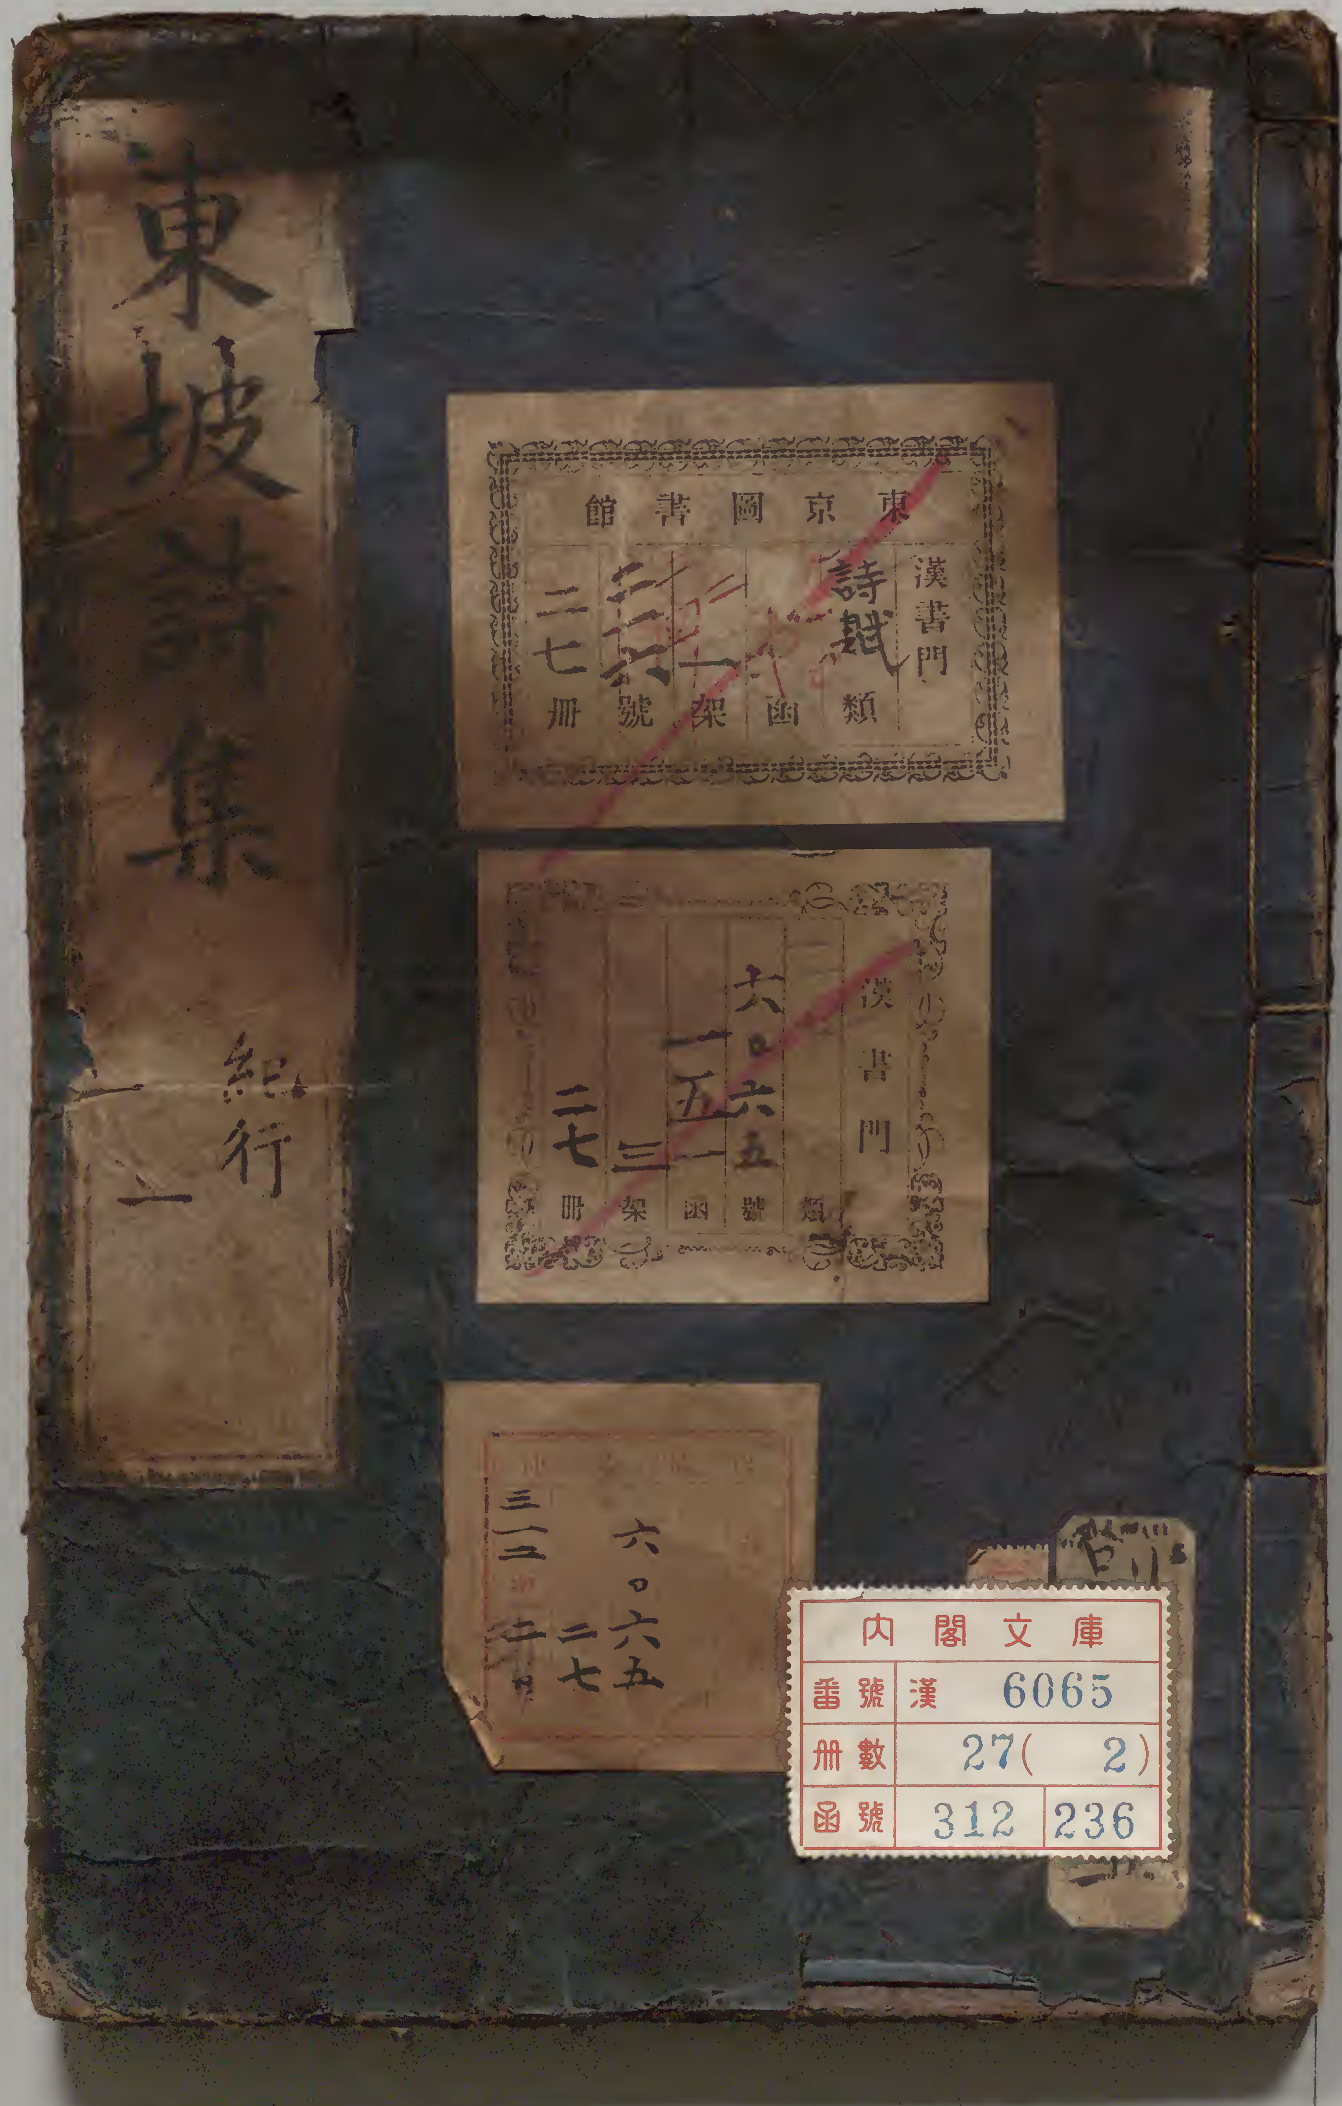 東坡詩集
紀行
一
東京圖書館
漢書門
詩賦類
函
一架
號
二七冊
漢書門
類
六〇六五號
一五一函
三架
二七冊
六〇六五
二七
三一二
內閣文庫
番號 漢 6065
冊數 27( 2)
函號 312 236